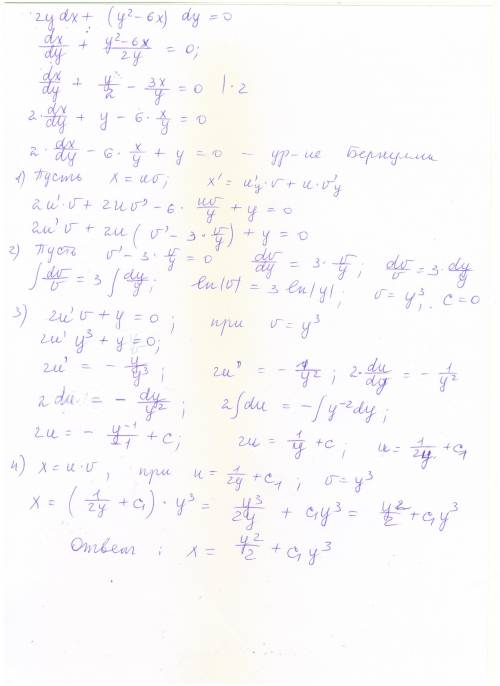 2y dx + (y² - 6x) dy = 0
dx/dy + (y² - 6x)/2y = 0;
dx/dy + y/2 - 3x/y = 0 | · 2
2 · dx/dy + y - 6 · x/y = 0
2 · dx/dy - 6 · x/y + y = 0 – ур-ие Бернулли
1) Пусть x = uv; x' = u'y · v + u · v'y
2u' · v + 2uv' - 6 · uv/y + y = 0
2u'v + 2u (v' - 3 · v/y) + y = 0
2) Пусть v' - 3 · v/y = 0 dv/dy = 3 · v/y; dv/v = 3 · dy/y
∫ dv/v = 3 ∫ dy/y; ln|v| = 3 ln|y|, v = y³, c = 0
3) 2u'v + y = 0; при v = y³
2u'y³ + y = 0;
2u' = - y/y³; 2u' = - 1/y²; 2 · du/dy = - 1/y²
2du = - dy/y²; 2∫du = -∫y⁻²dy;
2u = - y⁻¹/-1 + c; 2u = 1/y + c; u = 1/2y + c₁
4) x = u · v, при u = 1/2y + c₁; v = y³
x = (1/2y + c₁) · y³ = y³/2y + c₁y³ = y²/2 + c₁y³
Ответ: x = y²/2 + c₁y³